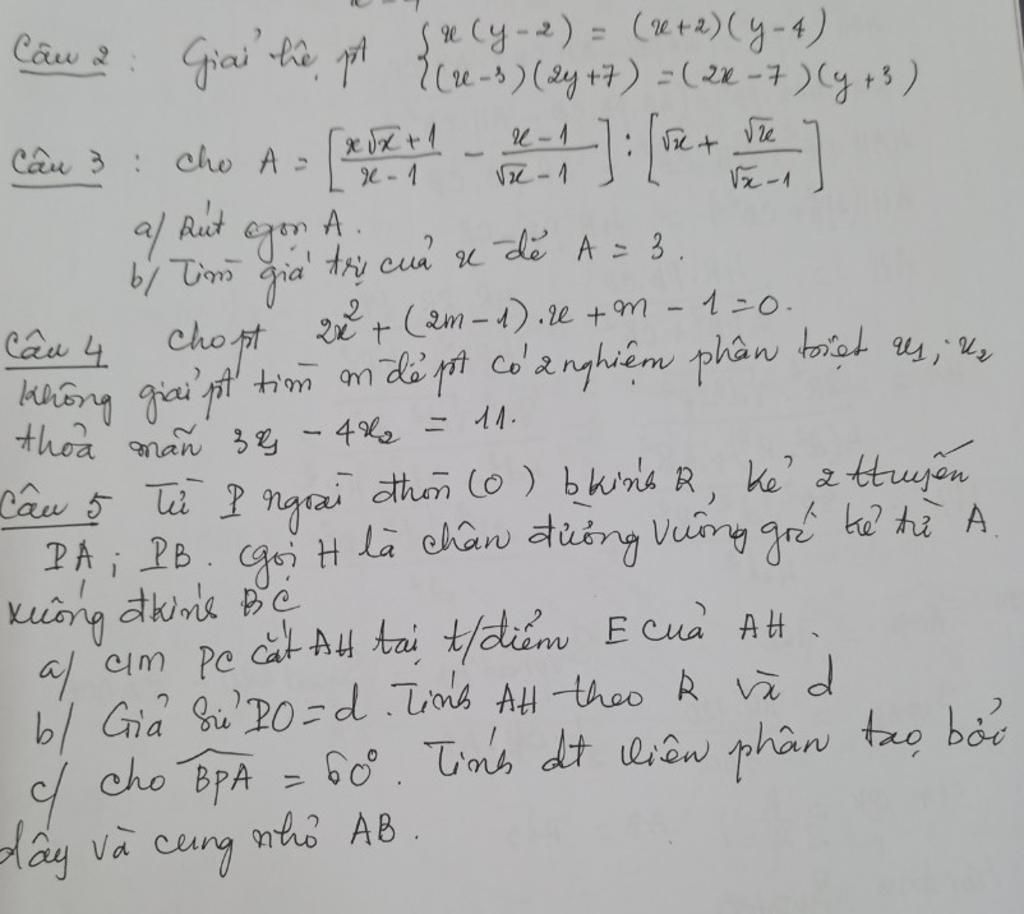 Câu 2 : Giải hệ pt { x(y-2) = (x+2)(y-4)
{ (x-3)(2y+7) = (2x-7)(y+3)
Câu 3 : cho A = [ (x√x+1)/(x-1) - (x-1)/(√x-1) ] : [ √x + √x/(√x-1) ]
a/ Rút gọn A.
b/ Tìm giá trị của x để A = 3.
Câu 4 Cho pt 2x² + (2m-1).x + m - 1 = 0.
không giải pt tìm m để pt có 2 nghiệm phân biệt x₁; x₂
thoả mãn 3x₁ - 4x₂ = 11.
Câu 5 Từ P ngoài đtròn (O) bkính R, kẻ 2 ttuyến
PA; PB. Gọi H là chân đường vuông góc kẻ từ A
xuống đkính BC
a/ cm PC cắt AH tại t/điểm E của AH.
b/ Giả sử PO = d. Tính AH theo R và d
c/ cho BPA = 60°. Tính dt viên phân tạo bởi
dây và cung nhỏ AB.